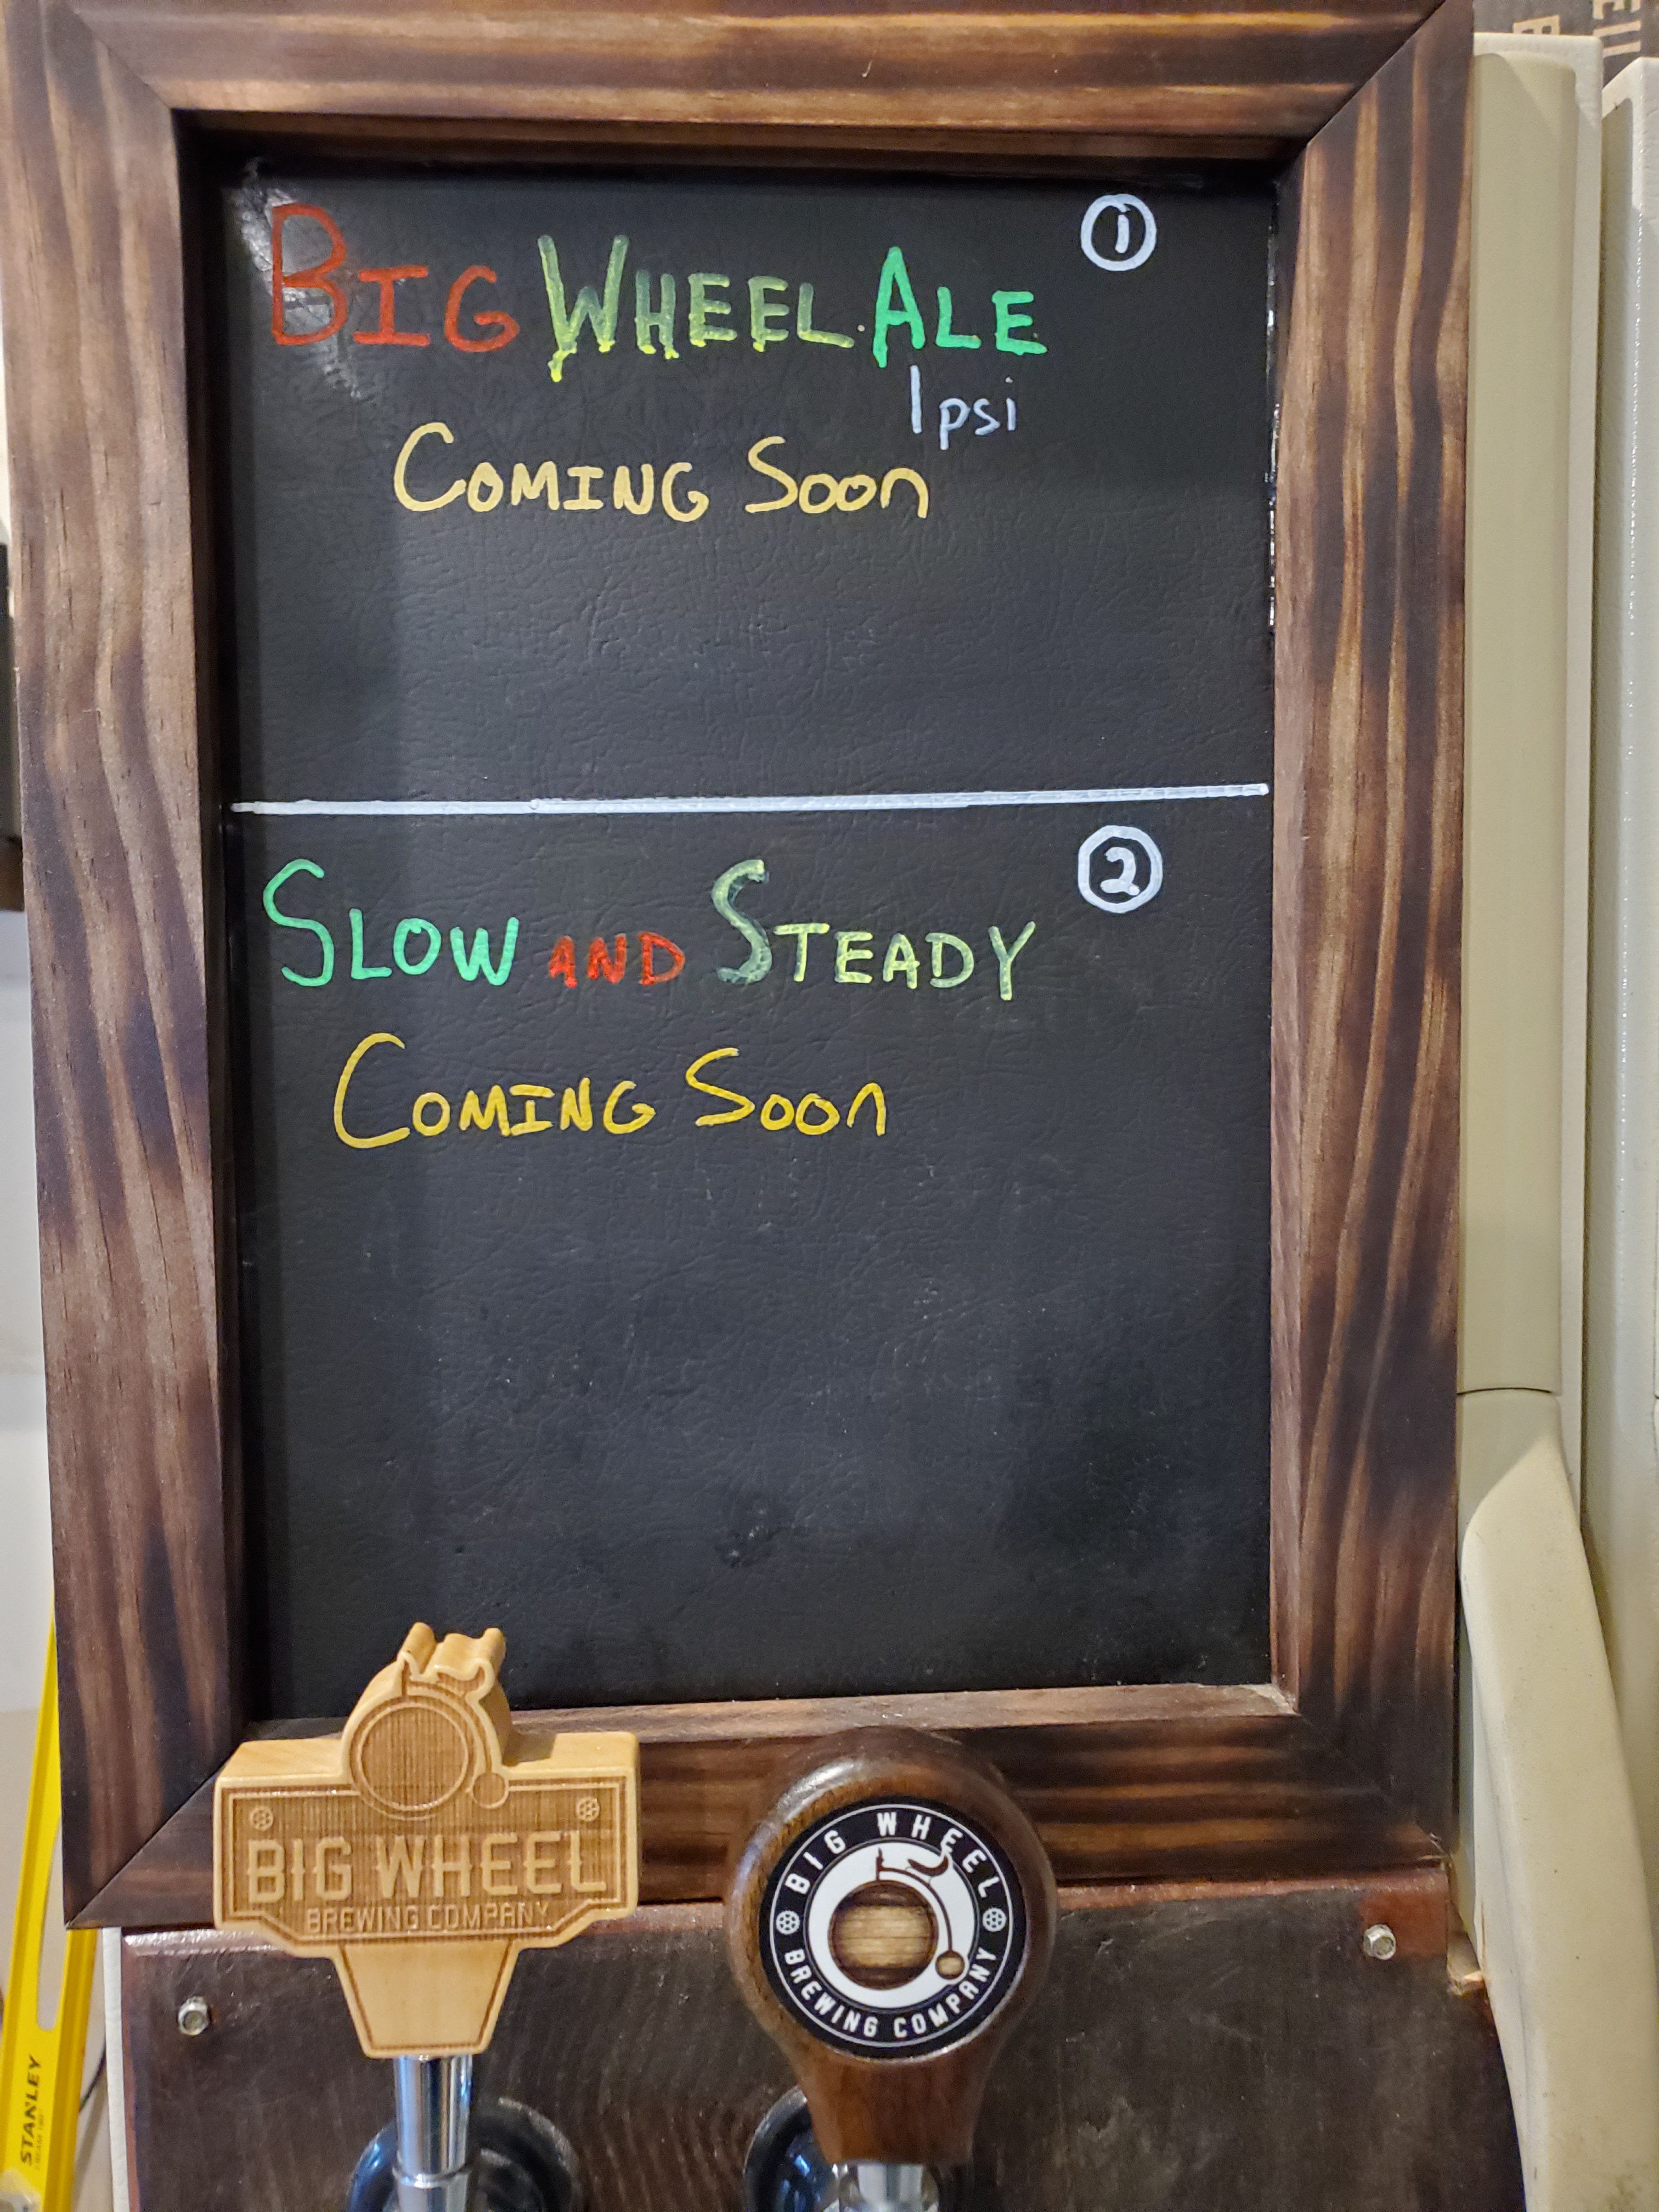 BIG WHEEL ALE
①
1psi
COMING Soon
SLOW AND STEADY
②
COMING Soon
BIG WHEEL
BREWING COMPANY
BIG WHEEL
BREWING COMPANY
STANLEY